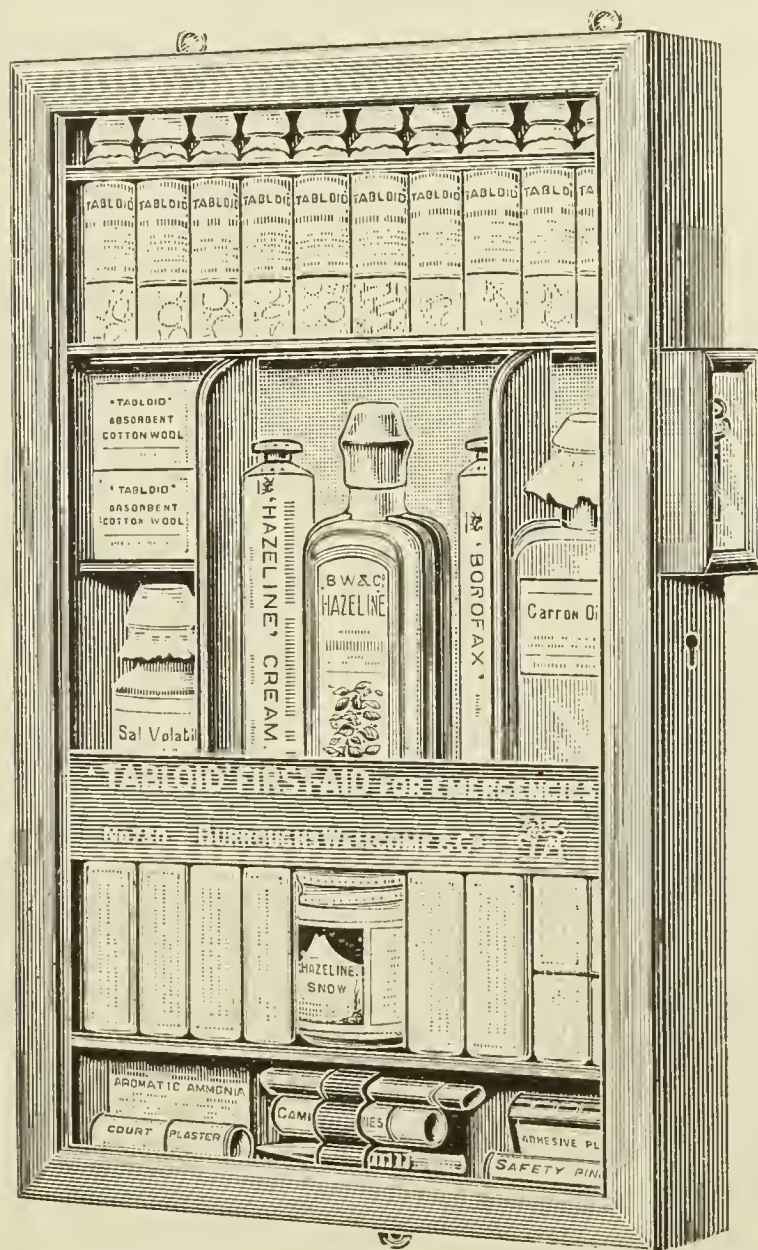 TABLOID TABLOID TABLOID TABLOID TABLOID TABLOID TABLOID TABLOID TABLOID TA
"TABLOID"
ABSORBENT
COTTON WOOL
"TABLOID"
ABSORBENT
COTTON WOOL
Sal Volatil
'HAZELINE' CREAM.
B W & Co
HAZELINE
'BOROFAX'
Carron Oi
"TABLOID" FIRST-AID FOR EMERGENCIES
BURROUGHS WELLCOME & Co
HAZELINE
SNOW
AROMATIC AMMONIA
COURT PLASTER
ADHESIVE PL
SAFETY PIN